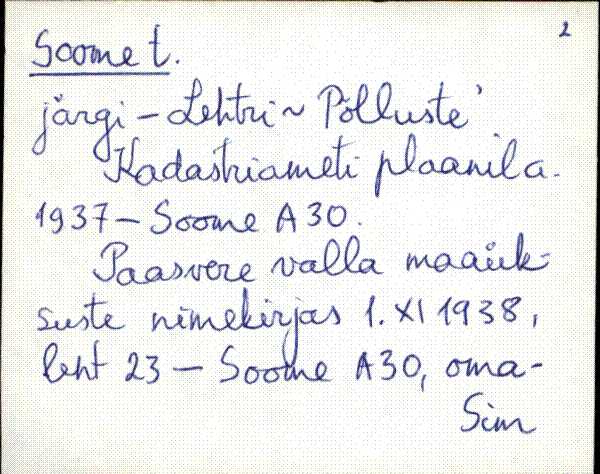 2
Soome t.
järgi – Lehtri ~ Põlluste'
Kadastriameti plaanil a.
1937 – Soome A 30.
Paasvere valla maaük-
suste nimekirjas 1. XI 1938,
leht 23 – Soome A30, oma-
Sim